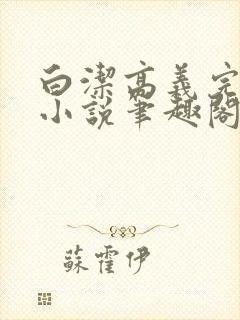 白潔高義完
小說筆趣閣
蘇霍伊